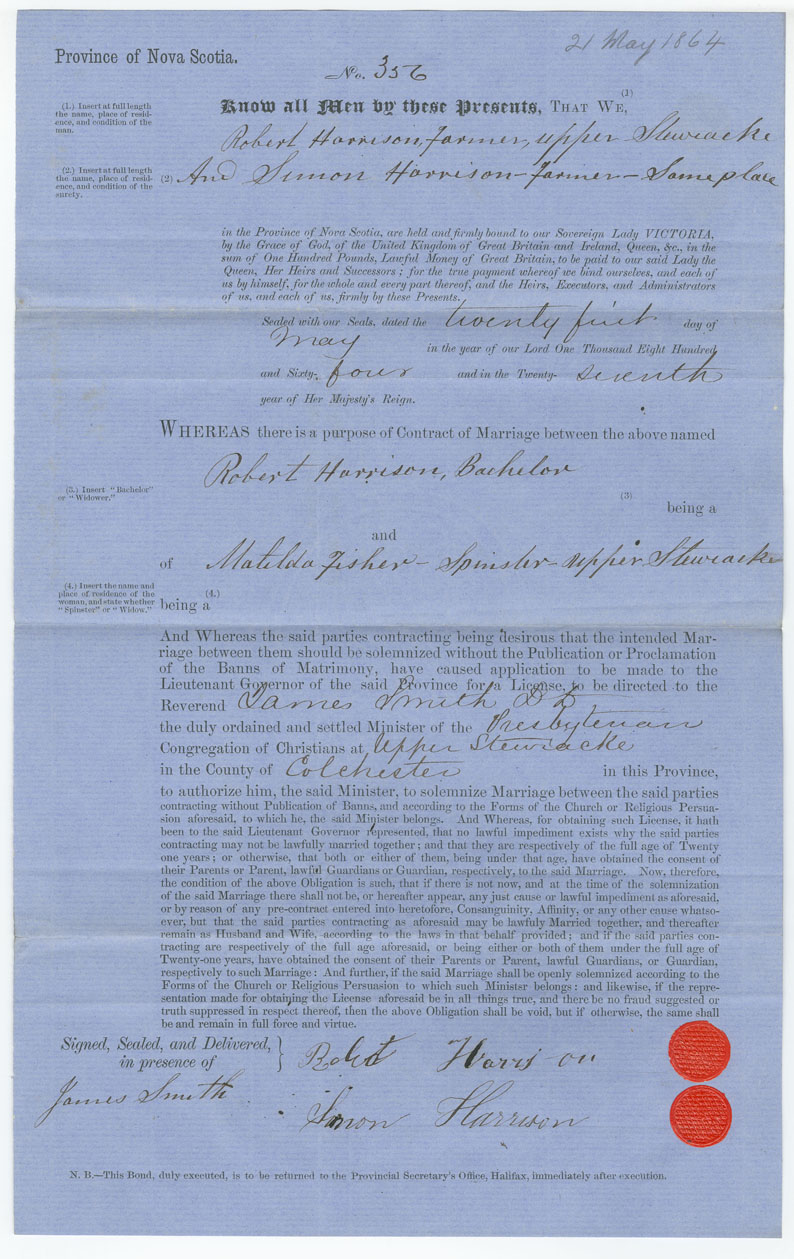 21 May 1864
Province of Nova Scotia.
No. 356
(1.) Insert at full length
the name, place of resid-
ence, and condition of the
man.
Know all Men by these Presents, THAT WE, (1)
Robert Harrison, farmer, upper Stewiacke
(2.) Insert at full length
the name, place of resid-
ence, and condition of the
surety.
(2) And Simon Harrison - farmer - Same place
in the Province of Nova Scotia, are held and firmly bound to our Sovereign Lady VICTORIA,
by the Grace of God, of the United Kingdom of Great Britain and Ireland, Queen, &c., in the
sum of One Hundred Pounds, Lawful Money of Great Britain, to be paid to our said Lady the
Queen, Her Heirs and Successors; for the true payment whereof we bind ourselves, and each of
us by himself, for the whole and every part thereof, and the Heirs, Executors, and Administrators
of us, and each of us, firmly by these Presents.
Sealed with our Seals, dated the twenty first day of
May in the year of our Lord One Thousand Eight Hundred
and Sixty- four and in the Twenty- seventh
year of Her Majesty's Reign.
WHEREAS there is a purpose of Contract of Marriage between the above named
Robert Harrison, Bachelor
(3.) Insert "Bachelor"
or "Widower."
(3) being a
and
of Matilda Fisher - Spinster - upper Stewiacke
(4.) Insert the name and
place of residence of the
woman, and state whether
"Spinster" or "Widow."
being a (4.)
And Whereas the said parties contracting being desirous that the intended Mar-
riage between them should be solemnized without the Publication or Proclamation
of the Banns of Matrimony, have caused application to be made to the
Lieutenant Governor of the said Province for a License, to be directed to the
Reverend James Smith D D
the duly ordained and settled Minister of the Presbyterian
Congregation of Christians at Upper Stewiacke
in the County of Colchester in this Province,
to authorize him, the said Minister, to solemnize Marriage between the said parties
contracting without Publication of Banns, and according to the Forms of the Church or Religious Persua-
sion aforesaid, to which he, the said Minister belongs. And Whereas, for obtaining such License, it hath
been to the said Lieutenant Governor represented, that no lawful impediment exists why the said parties
contracting may not be lawfully married together; and that they are respectively of the full age of Twenty
one years; or otherwise, that both or either of them, being under that age, have obtained the consent of
their Parents or Parent, lawful Guardians or Guardian, respectively, to the said Marriage. Now, therefore,
the condition of the above Obligation is such, that if there is not now, and at the time of the solemnization
of the said Marriage there shall not be, or hereafter appear, any just cause or lawful impediment as aforesaid,
or by reason of any pre-contract entered into heretofore, Consanguinity, Affinity, or any other cause whatso-
ever, but that the said parties contracting as aforesaid may be lawfuly Married together, and thereafter
remain as Husband and Wife, according to the laws in that behalf provided; and if the said parties con-
tracting are respectively of the full age aforesaid, or being either or both of them under the full age of
Twenty-one years, have obtained the consent of their Parents or Parent, lawful Guardians, or Guardian,
respectively to such Marriage: And further, if the said Marriage shall be openly solemnized according to the
Forms of the Church or Religious Persuasion to which such Minister belongs: and likewise, if the repre-
sentation made for obtaining the License aforesaid be in all things true, and there be no fraud suggested or
truth suppressed in respect thereof, then the above Obligation shall be void, but if otherwise, the same shall
be and remain in full force and virtue.
Signed, Sealed, and Delivered,
in presence of
Robert Harrison
James Smith
Simon Harrison
N. B.—This Bond, duly executed, is to be returned to the Provincial Secretary's Office, Halifax, immediately after execution.